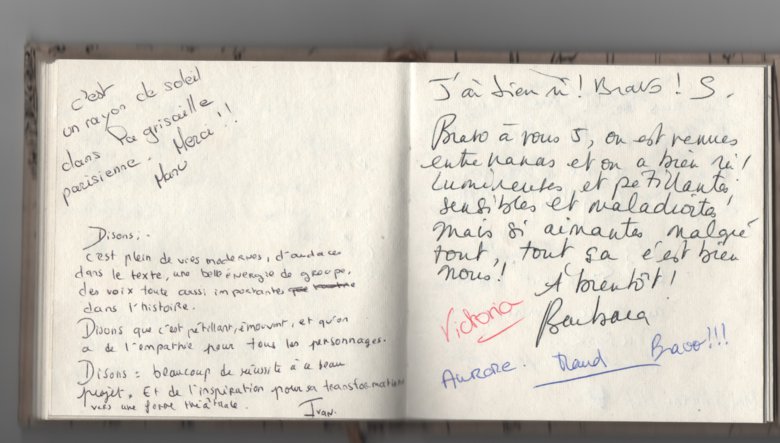 c'est
un rayon de soleil
dans la grisaille
parisienne. Merci!!
Manu
Disons :
c'est plein de vies modernes, d'audaces
dans le texte, une belle énergie de groupe,
des voix toute aussi importantes que
dans l'histoire.
Disons que c'est pétillant, émouvant, et qu'on
a de l'empathie pour tous les personnages.
Disons : beaucoup de réussite à ce beau
projet. Et de l'inspiration pour sa transformation
vers une forme théâtrale.
Ivan.
J'ai bien ri! Bravo! S.
Bravo à vous 5, on est venues
entre nanas et on a bien ri!
Lumineuses, et pétillantes
sensibles et maladroites
mais si aimantes malgré
tout, tout ça c'est bien
nous!
A bientôt!
Barbara
Victoria
Aurore. Maud Bravo!!!